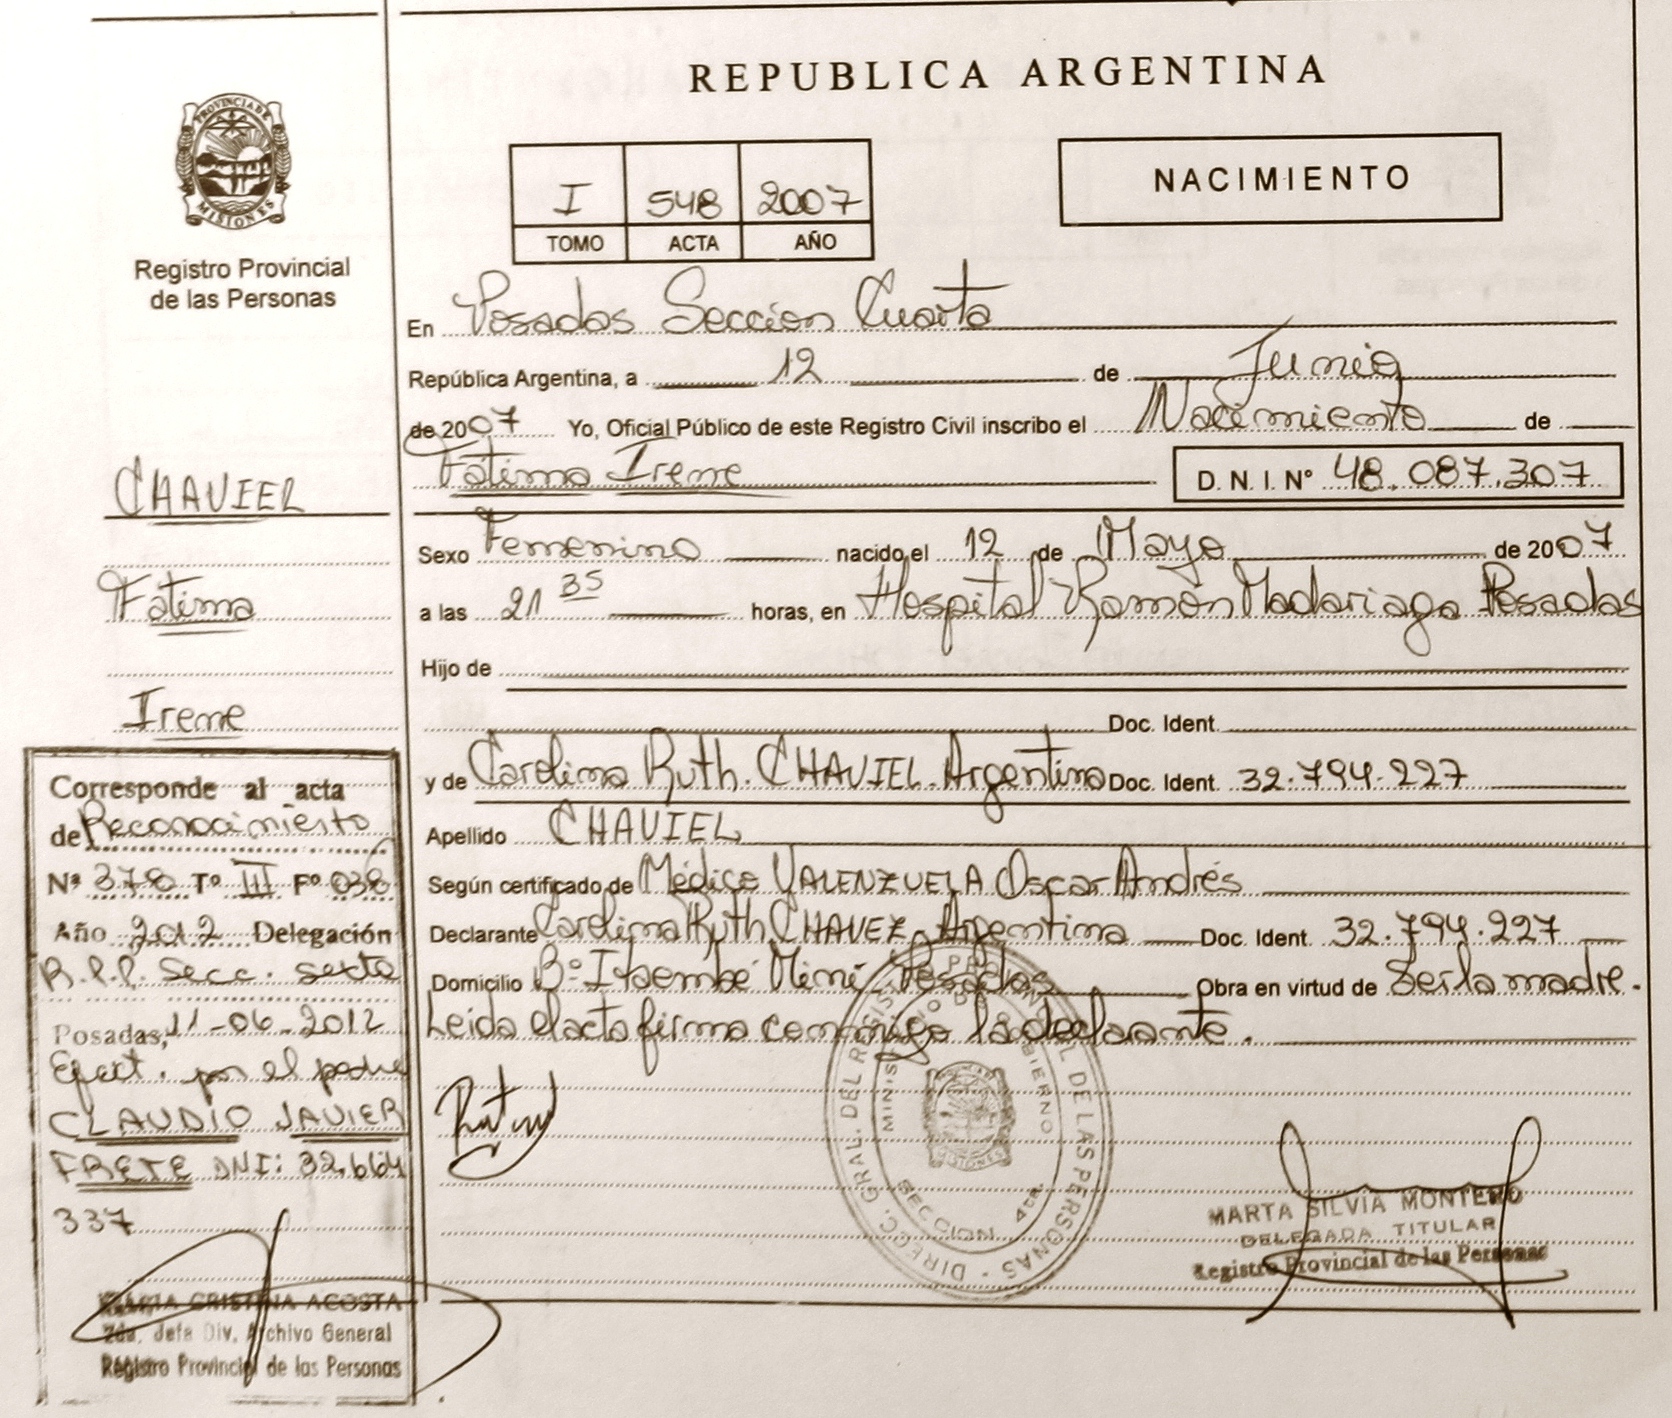 REPUBLICA ARGENTINA
PROVINCIA DE
MISIONES
Registro Provincial
de las Personas
I 548 2007
TOMO ACTA AÑO
NACIMIENTO
En Posadas Seccion Cuarta
República Argentina, a 12 de Junio
de 2007 Yo, Oficial Público de este Registro Civil inscribo el Nacimiento de
Fátima Irene D. N. I. Nº 48.087.307
Sexo Femenino nacido el 12 de Mayo de 2007
a las 21 35 horas, en Hospital Ramón Madariaga Posadas
Hijo de
Doc. Ident.
y de Carolina Ruth. CHAVIEL. Argentina Doc. Ident. 32.794.227
Apellido CHAVIEL
Según certificado de Médico VALENZUELA Oscar Andrés
Declarante Carolina Ruth CHAVEZ. Argentina Doc. Ident. 32.794.227
Domicilio Bº Itaembé Miní Posadas Obra en virtud de Ser la madre.
Leida el acta firma conmigo la declarante.
CHAVIEL
Fátima
Irene
Corresponde al acta
de Reconocimiento
Nº 378 Tº III Fº 038
Año 2012 Delegación
R.P.P. Secc. sexta
Posadas, 11-06-2012
Efect. por el padre
CLAUDIO JAVIER
FRETE DNI: 32.664
337
MARIA CRISTINA ACOSTA
2da. Jefa Div. Archivo General
Registro Provincial de las Personas
DIRECC. GRAL. DEL REGIST. DE LAS PERSONAS
GOBIERNO
MISIONES
SECCION 4ta.
MARTA SILVIA MONTERO
DELEGADA TITULAR
Registro Provincial de las Personas